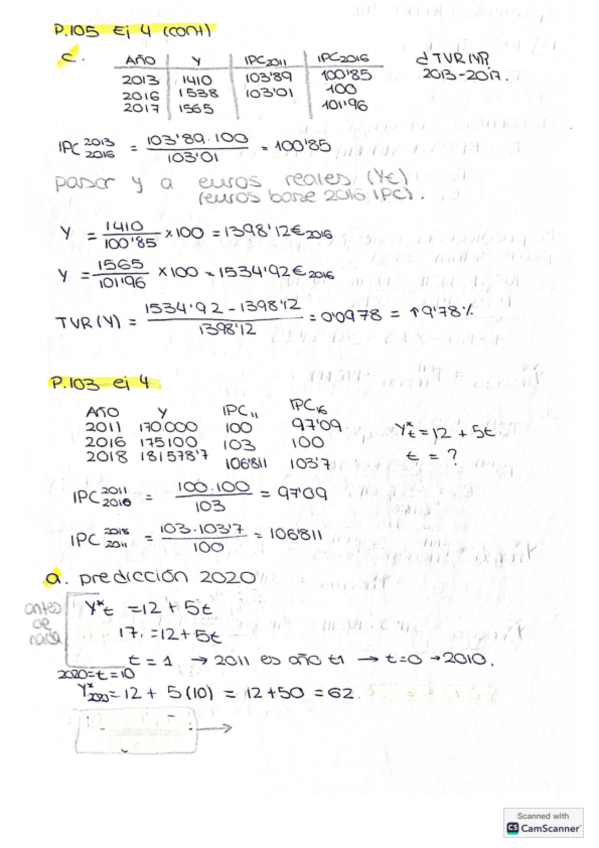 P.105 Ej 4 (cont)
c.
AÑO Y IPC2011 IPC2016 ¿TVR(Y)?
2013 1410 103'89 100'85 2013-2017.
2016 1538 103'01 100
2017 1565 101'96
IPC 2013 2016 = 103'89.100 / 103'01 = 100'85
pasar y a euros reales (Y€)
(euros base 2016 IPC).
Y = 1410 / 100'85 ×100 = 1398'12€2016
Y = 1565 / 101'96 ×100 = 1534'92€2016
TVR (Y) = 1534'92 - 1398'12 / 1398'12 = 0'0978 = ↑9'78%
P.103 ej 4
AÑO Y IPC11 IPC16
2011 170.000 100 97'09
2016 175100 103 100
2018 181578'7 106'811 103'7
Y*t = 12 + 5t
t = ?
IPC 2011 2016 = 100.100 / 103 = 97'09
IPC 2018 2011 = 103.103'7 / 100 = 106'811
a. predicción 2020
antes de nada
Y*t = 12 + 5t
17. = 12 + 5t
t = 1 → 2011 es año t1 → t=0 → 2010.
2020=t=10
Y*2020 = 12 + 5(10) = 12+50 = 62.
Scanned with
CS CamScanner